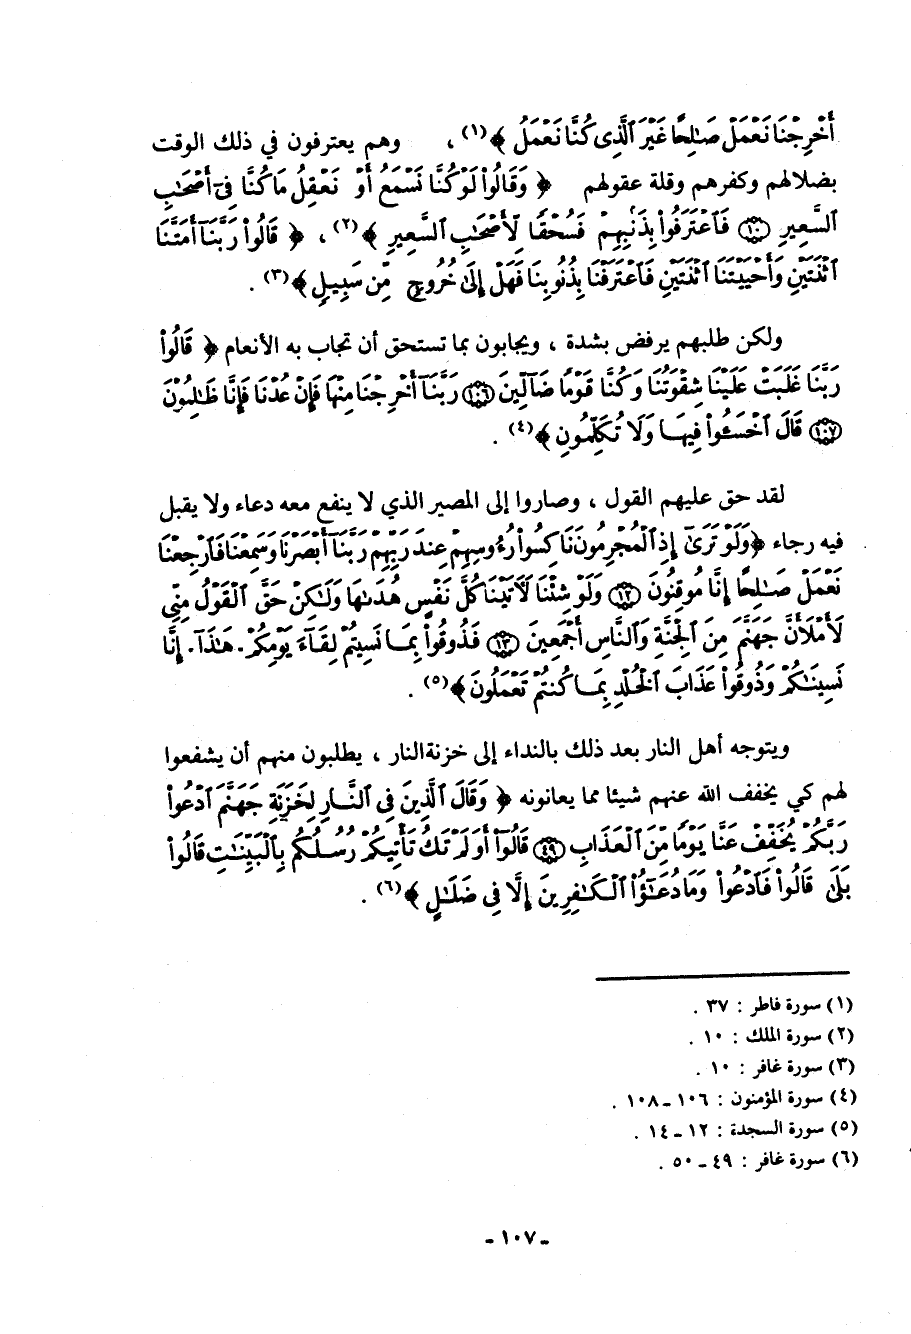 أَخْرِجْنَا نَعْمَلْ صَٰلِحًا غَيْرَ ٱلَّذِى كُنَّا نَعْمَلُ ﴾(١) ، وهم يعترفون في ذلك الوقت
بضلالهم وكفرهم وقلة عقولهم ﴿ وَقَالُوا۟ لَوْ كُنَّا نَسْمَعُ أَوْ نَعْقِلُ مَا كُنَّا فِىٓ أَصْحَٰبِ
ٱلسَّعِيرِ ١٠ فَٱعْتَرَفُوا۟ بِذَنۢبِهِمْ فَسُحْقًا لِّأَصْحَٰبِ ٱلسَّعِيرِ ﴾(٢) ، ﴿ قَالُوا۟ رَبَّنَآ أَمَتَّنَا
ٱثْنَتَيْنِ وَأَحْيَيْتَنَا ٱثْنَتَيْنِ فَٱعْتَرَفْنَا بِذُنُوبِنَا فَهَلْ إِلَىٰ خُرُوجٍ مِّن سَبِيلٍ ﴾(٣) .
ولكن طلبهم يرفض بشدة ، ويجابون بما تستحق أن تجاب به الأنعام ﴿ قَالُوا۟
رَبَّنَا غَلَبَتْ عَلَيْنَا شِقْوَتُنَا وَكُنَّا قَوْمًا ضَآلِّينَ ١٠٦ رَبَّنَآ أَخْرِجْنَا مِنْهَا فَإِنْ عُدْنَا فَإِنَّا ظَٰلِمُونَ
١٠٧ قَالَ ٱخْسَـُٔوا۟ فِيهَا وَلَا تُكَلِّمُونِ ﴾(٤) .
لقد حق عليهم القول ، وصاروا إلى المصير الذي لا ينفع معه دعاء ولا يقبل
فيه رجاء ﴿وَلَوْ تَرَىٰٓ إِذِ ٱلْمُجْرِمُونَ نَاكِسُوا۟ رُءُوسِهِمْ عِندَ رَبِّهِمْ رَبَّنَآ أَبْصَرْنَا وَسَمِعْنَا فَٱرْجِعْنَا
نَعْمَلْ صَٰلِحًا إِنَّا مُوقِنُونَ ١٢ وَلَوْ شِئْنَا لَـَٔاتَيْنَا كُلَّ نَفْسٍ هُدَىٰهَا وَلَٰكِنْ حَقَّ ٱلْقَوْلُ مِنِّى
لَأَمْلَأَنَّ جَهَنَّمَ مِنَ ٱلْجِنَّةِ وَٱلنَّاسِ أَجْمَعِينَ ١٣ فَذُوقُوا۟ بِمَا نَسِيتُمْ لِقَآءَ يَوْمِكُمْ هَٰذَآ إِنَّا
نَسِينَٰكُمْ وَذُوقُوا۟ عَذَابَ ٱلْخُلْدِ بِمَا كُنتُمْ تَعْمَلُونَ ﴾(٥) .
ويتوجه أهل النار بعد ذلك بالنداء إلى خزنة النار ، يطلبون منهم أن يشفعوا
لهم كي يخفف الله عنهم شيئا مما يعانونه ﴿ وَقَالَ ٱلَّذِينَ فِى ٱلنَّارِ لِخَزَنَةِ جَهَنَّمَ ٱدْعُوا۟
رَبَّكُمْ يُخَفِّفْ عَنَّا يَوْمًا مِّنَ ٱلْعَذَابِ ٤٩ قَالُوٓا۟ أَوَلَمْ تَكُ تَأْتِيكُمْ رُسُلُكُم بِٱلْبَيِّنَٰتِ قَالُوا۟
بَلَىٰ قَالُوا۟ فَٱدْعُوا۟ وَمَا دُعَٰٓؤُا۟ ٱلْكَٰفِرِينَ إِلَّا فِى ضَلَٰلٍ ﴾(٦) .
(١) سورة فاطر : ٣٧ .
(٢) سورة الملك : ١٠ .
(٣) سورة غافر : ١٠ .
(٤) سورة المؤمنون : ١٠٦ ـ ١٠٨ .
(٥) سورة السجدة : ١٢ ـ ١٤ .
(٦) سورة غافر : ٤٩ ـ ٥٠ .
ـ ١٠٧ ـ